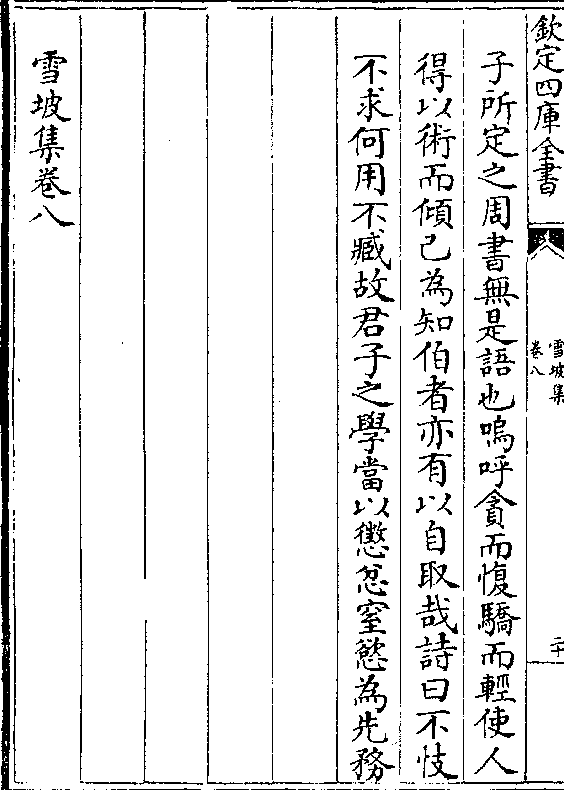 欽定四庫全書
雪坡集
卷八
二十
子所定之周書無是語也嗚呼貪而愎驕而輕使人
得以術而傾己為知伯者亦有以自取哉詩曰不忮
不求何用不臧故君子之學當以懲忿窒慾為先務
雪坡集卷八